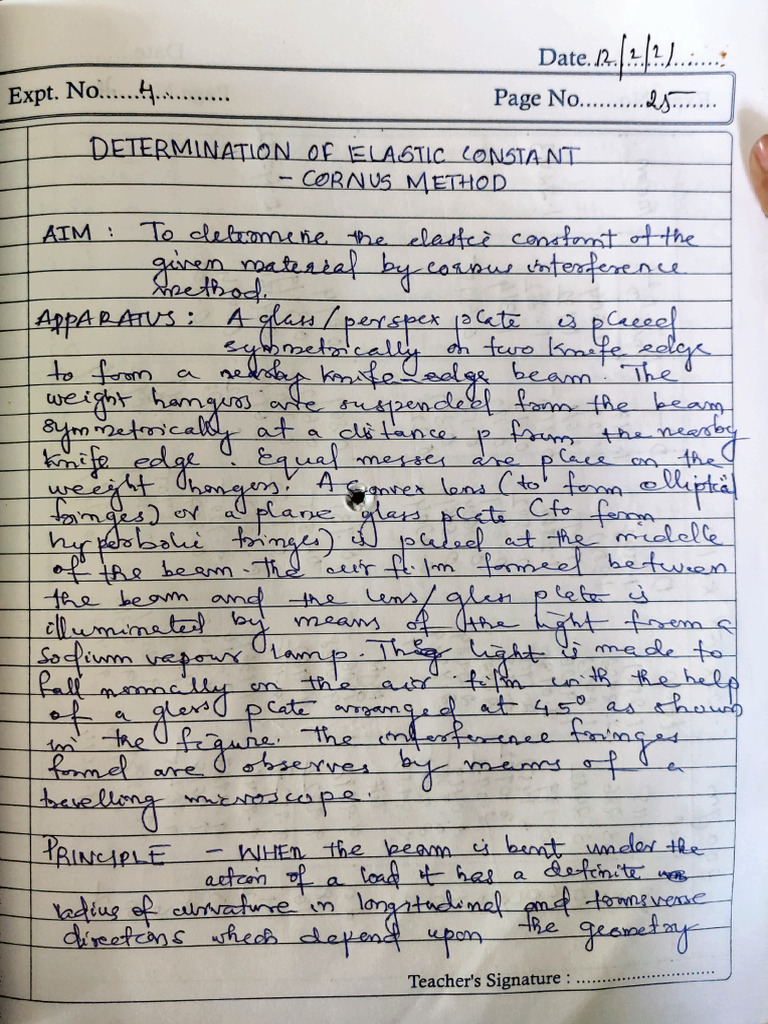 Date. 12/2/21
Expt. No. 4
Page No. 25
DETERMINATION OF ELASTIC CONSTANT
- CORNUS METHOD
AIM : To determine the elastic constant of the
given material by cornus interference
method.
APPARATUS : A glass/perspex plate is placed
symmetrically on two knife edge
to form a nearby knife-edge beam. The
weight hangers are suspended from the beam
symmetrically at a distance p from the nearby
knife edge. Equal messes are place on the
weight hangers. A convex lens (to form elliptical
fringes) or a plane glass plate (to form
hyperbolic fringes) is placed at the middle
of the beam. The air film formed between
the beam and the lens/glass plate is
illuminated by means of the light from a
Sodium vapour lamp. The light is made to
fall normally on the air film with the help
of a glass plate arranged at 45° as shown
in the figure. The interference fringes
formd are observes by means of a
travelling microscope.
PRINCIPLE - WHEN the beam is bent under the
action of a load it has a definite
radius of curvature in longitudinal and transverse
directions which depend upon the geometry
Teacher's Signature :